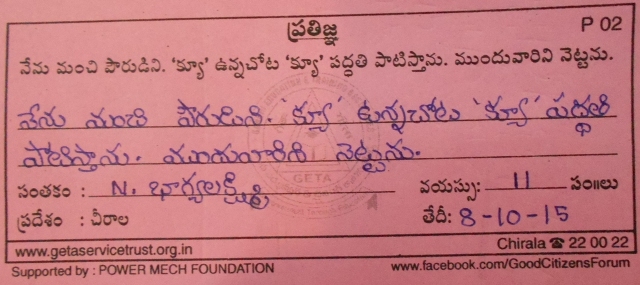 ప్రతిజ్ఞ P 02
నేను మంచి పౌరుడిని. 'క్యూ' ఉన్నచోట 'క్యూ' పద్ధతి పాటిస్తాను. ముందువారిని నెట్టను.
నేను మంచి పౌరుడిని. 'క్యూ' ఉన్నచోట 'క్యూ' పద్ధతి
పాటిస్తాను. ముందువారిని నెట్టను.
GETA
సంతకం : N. భాగ్యలక్ష్మి వయస్సు: 11 సం॥లు
ప్రదేశం : చీరాల తేదీ: 8-10-15
www.getaservicetrust.org.in Chirala ☎ 22 00 22
Supported by : POWER MECH FOUNDATION www.facebook.com/GoodCitizensForum